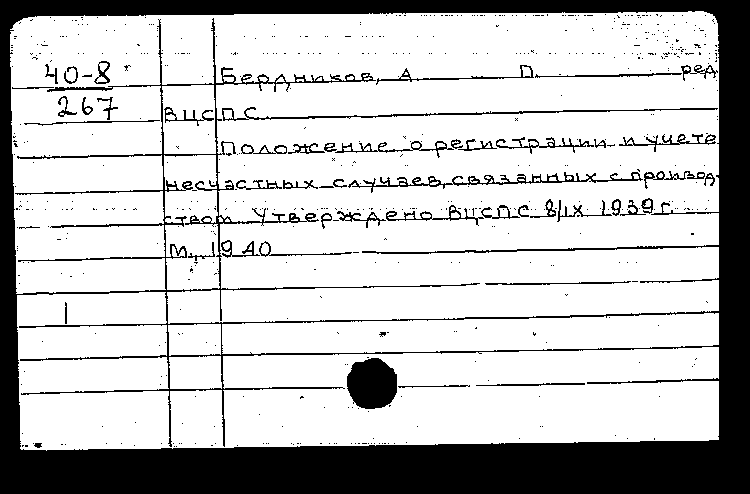 40-8 Бердников, А. П. ред
267 ВЦСПС
Положение о регистрации и учете
несчастных случаев, связанных с производ-
ством. Утверждено ВЦСПС 8/IX 1939 г.
М., 1940